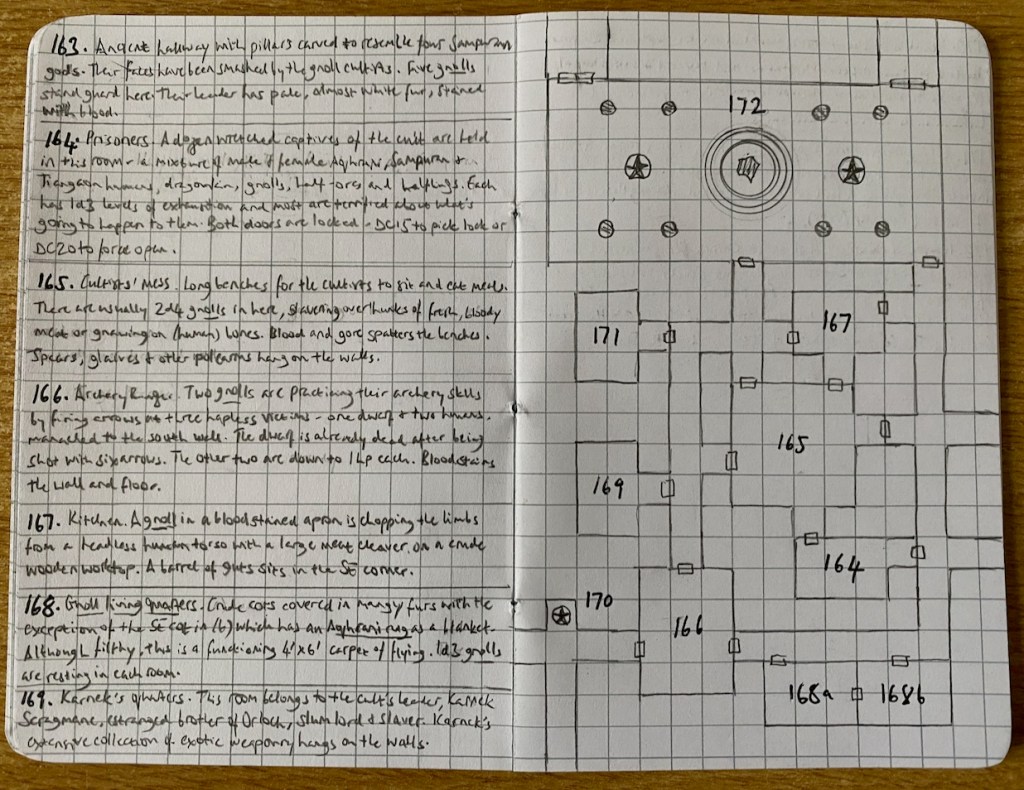 163. Ancient hallway with pillars carved to resemble four Sampuran
gods. Their faces have been smashed by the gnoll cultists. Five gnolls
stand guard here. Their leader has pale, almost white fur, stained
with blood.
164. Prisoners. A dozen wretched captives of the cult are held
in this room - a mixture of male & female Aghrani, Sampuran &
humans, dragonkin, gnolls, half-orcs and halflings. Each
has 1d3 levels of exhaustion and most are terrified about what's
going to happen to them. Both doors are locked - DC15 to pick lock or
DC20 to force open.
165. Cultists' Mess. Long benches for the cultists to sit and eat meals.
There are usually 2d4 gnolls in here, slavering over hunks of fresh, bloody
meat or gnawing on (human) bones. Blood and gore spatters the benches.
Spears, glaives & other polearms hang on the walls.
166. Archery Range. Two gnolls are practicing their archery skills
by firing arrows at three hapless victims - one dwarf & two humans
manacled to the south wall. The dwarf is already dead after being
shot with six arrows. The other two are down to 1hp each. Blood stains
the wall and floor.
167. Kitchen. A gnoll in a bloodstained apron is chopping the limbs
from a headless human torso with a large meat cleaver, on a crude
wooden worktop. A barrel of guts sits in the SE corner.
168. Gnoll living quarters. Crude cots covered in mangy furs with the
exception of the SE cot in (b) which has an Aghrani rug as a blanket.
Although filthy, this is a functioning 4'x6' carpet of flying. 1d3 gnolls
are resting in each room.
169. Karnek's quarters. This room belongs to the cult's leader, Karnek
Scragmane, estranged brother of Orlock, slum lord & slaver. Karnek's
extensive collection of exotic weaponry hangs on the walls.
172
171
167
165
169
164
170
166
168a
168b